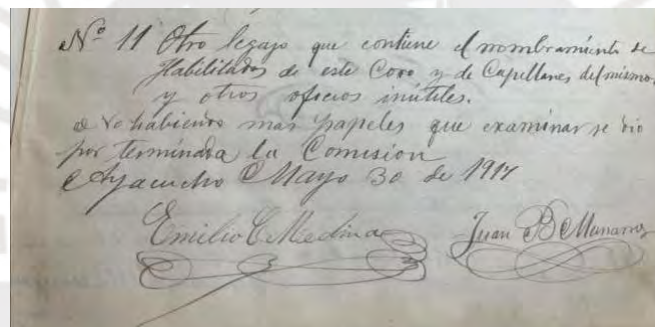 Nº 11 Otro legajo que contiene el nombramiento de
Habilitados de este Coro y de Capellanes del mismo.
y otros oficios inútiles.
No habiendo mas papeles que examinar se dio
por terminada la Comision
Ayacucho Mayo 30 de 1914
Emilio C Medina Juan B